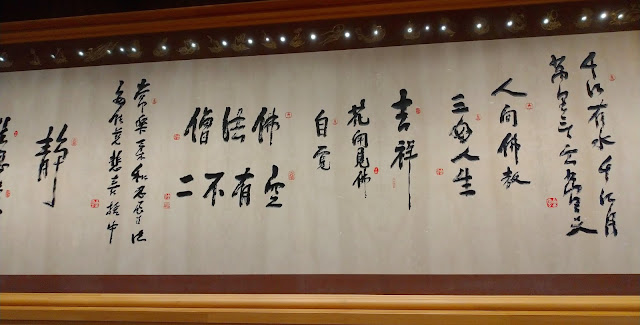 千江有水千江月
萬里無雲萬里天
人間佛教
三好人生
吉祥
花開見佛
自覺
佛法僧
空有不二
常樂柔和忍辱法
安住慈悲喜捨中
靜